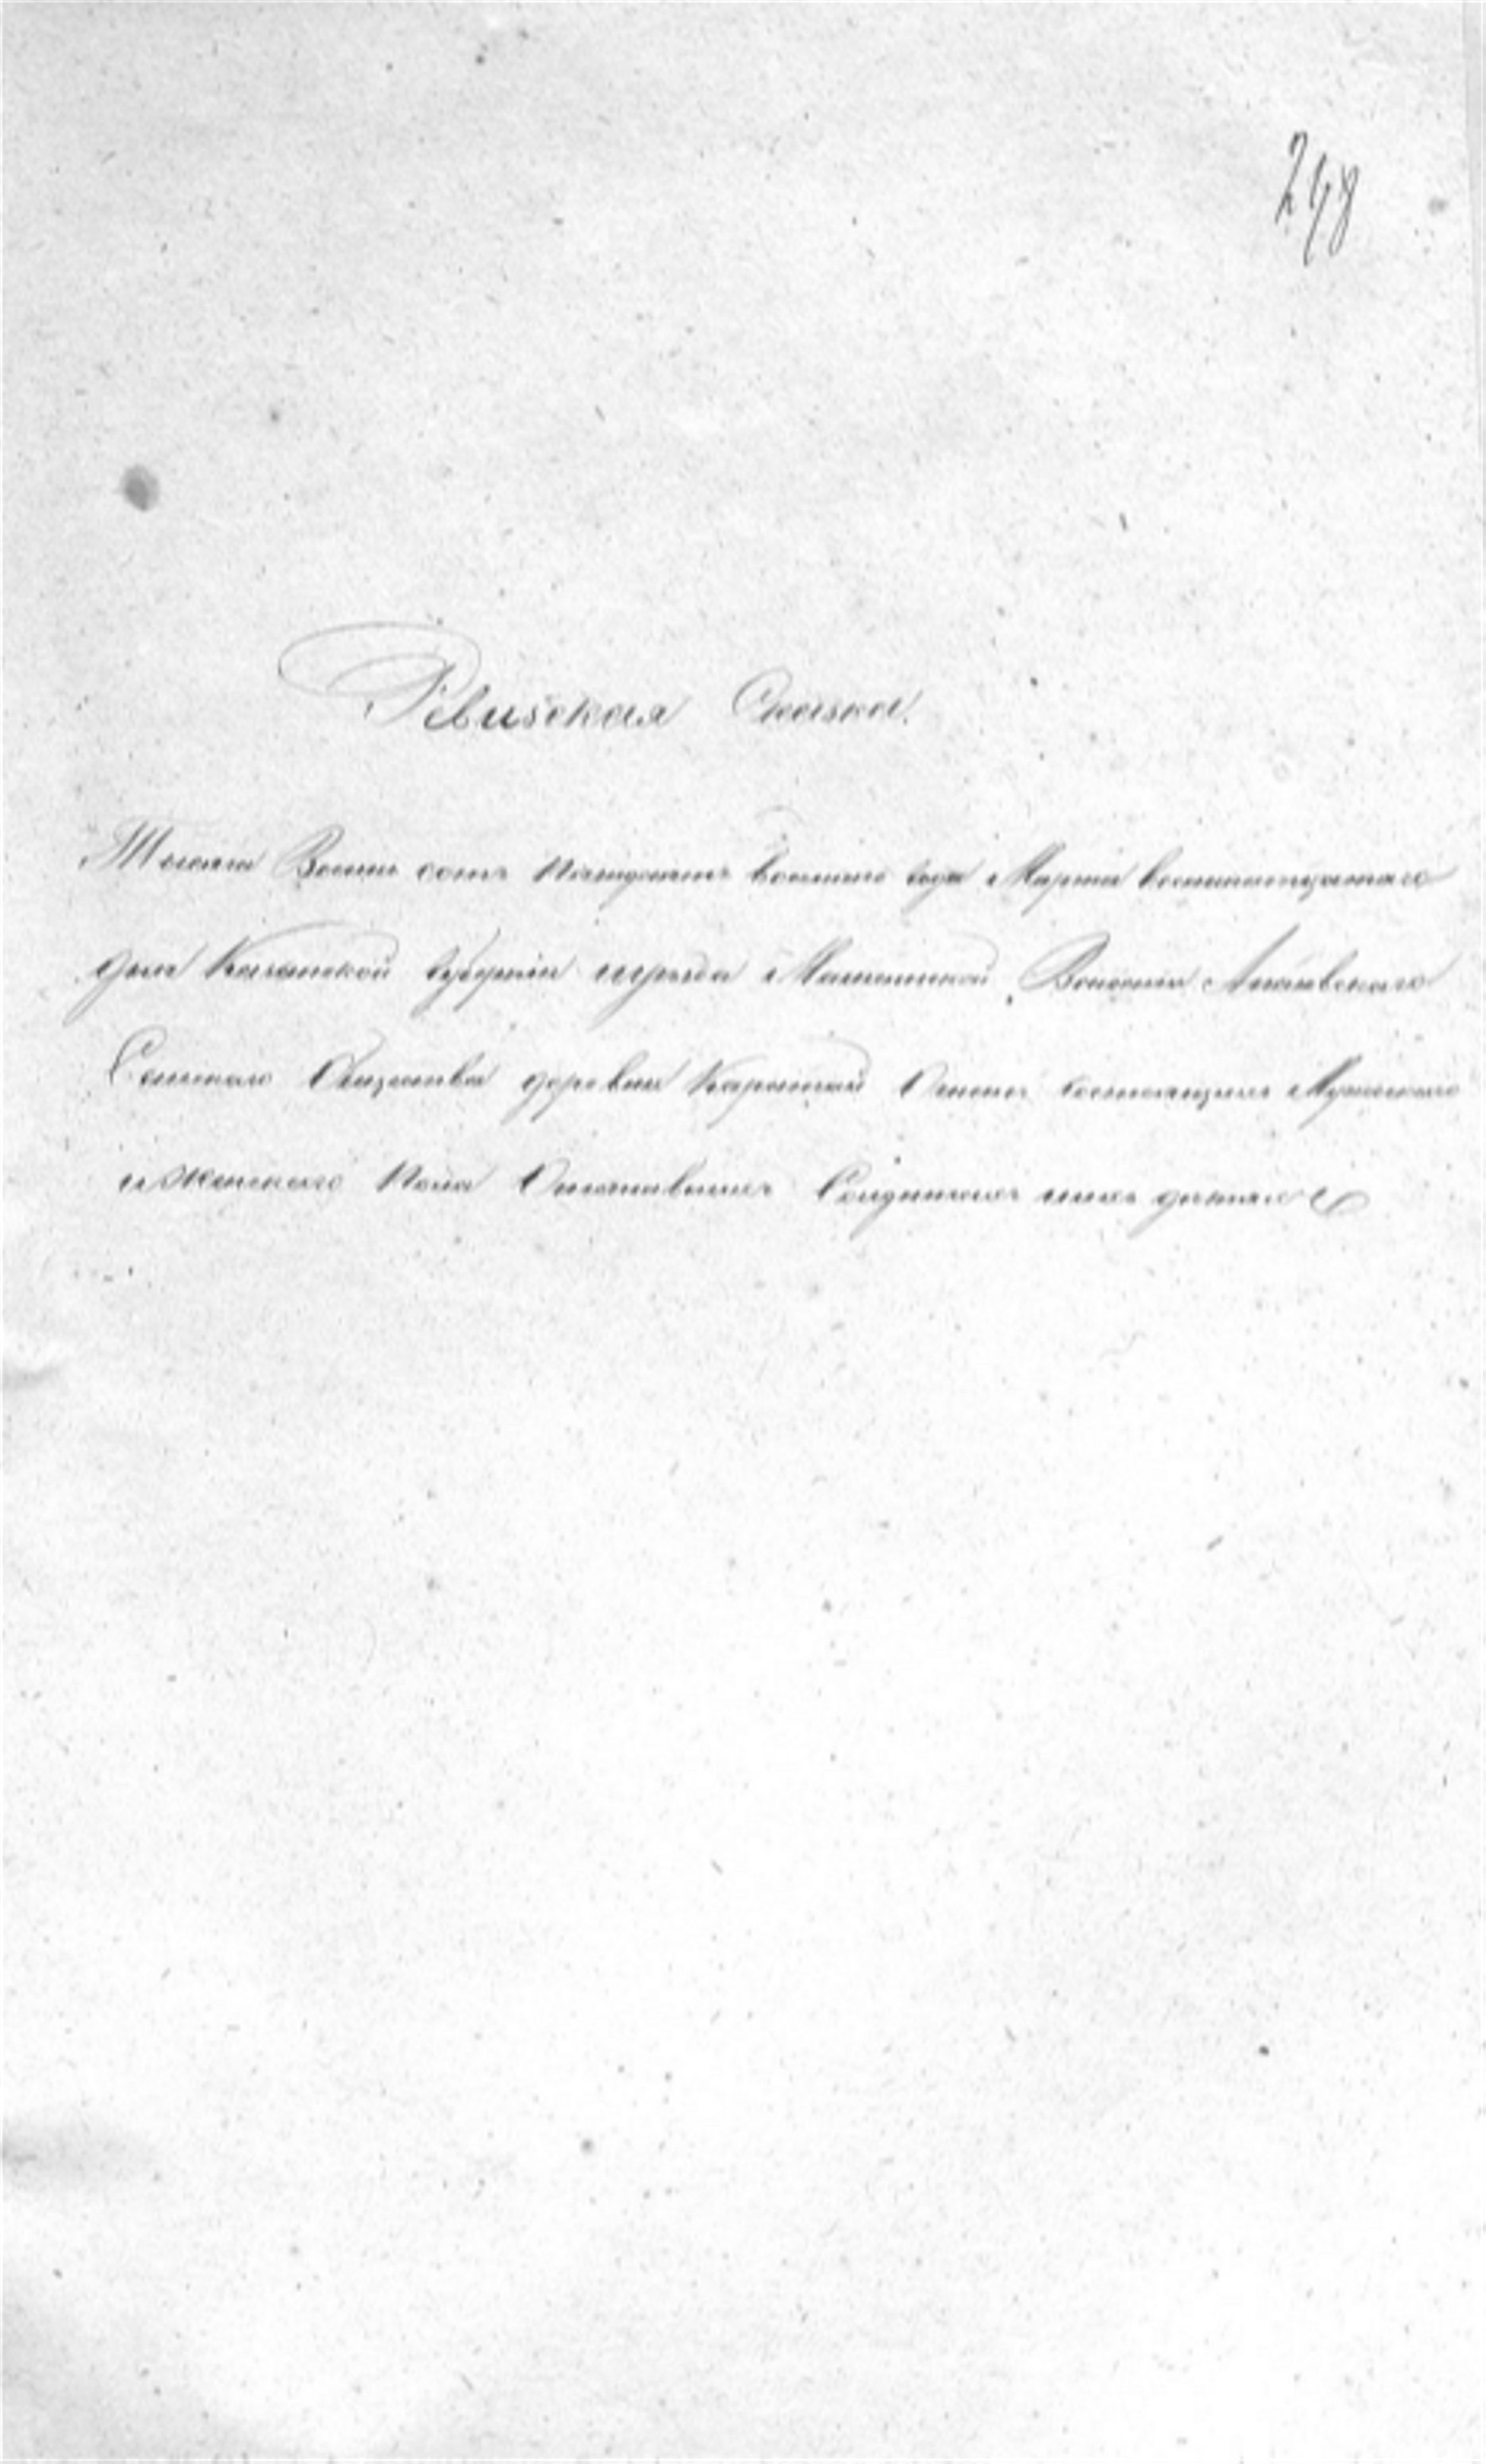 248
Ревизская Сказка.
Тысяча Восемь сотъ пятьдесятъ восьмаго года Марта восемнатцатаго
дня Казанской губерніи и уѣзда Волости
Сельскаго Общества деревни Каратай О состоящихъ Мужскаго
и Женскаго Пола Отставныхъ Солдаткахъ и ихъ дѣтяхъ